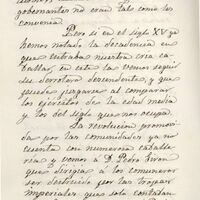 gobernantes no eran tales como les
convenia.
Pero si en el siglo XV ya
hemos notado la decadencia en
que entraba nuestra cria ca-
ballar, en este la vemos seguir
su derrotero descendente, y que
puede juzgarse al comparar
los ejércitos de la edad media
y los del siglo que nos ocupa.
La revolucion promovi-
da por las comunidades ya no
cuenta con numerosa caballe-
ria y vemos á D. Pedro Giron
que dirigia á los comuneros
ser destruido por las tropas
imperiales que solo contaban